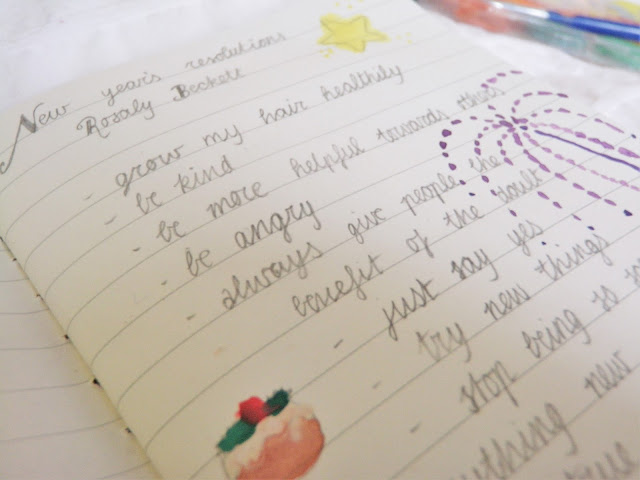 New year's resolutions
Rosaly Beckett
- grow my hair healthily
- be kind
- be more helpful towards others
- be angry
- always give people the
benefit of the doubt
- just say yes
- try new things
- stop being so
new